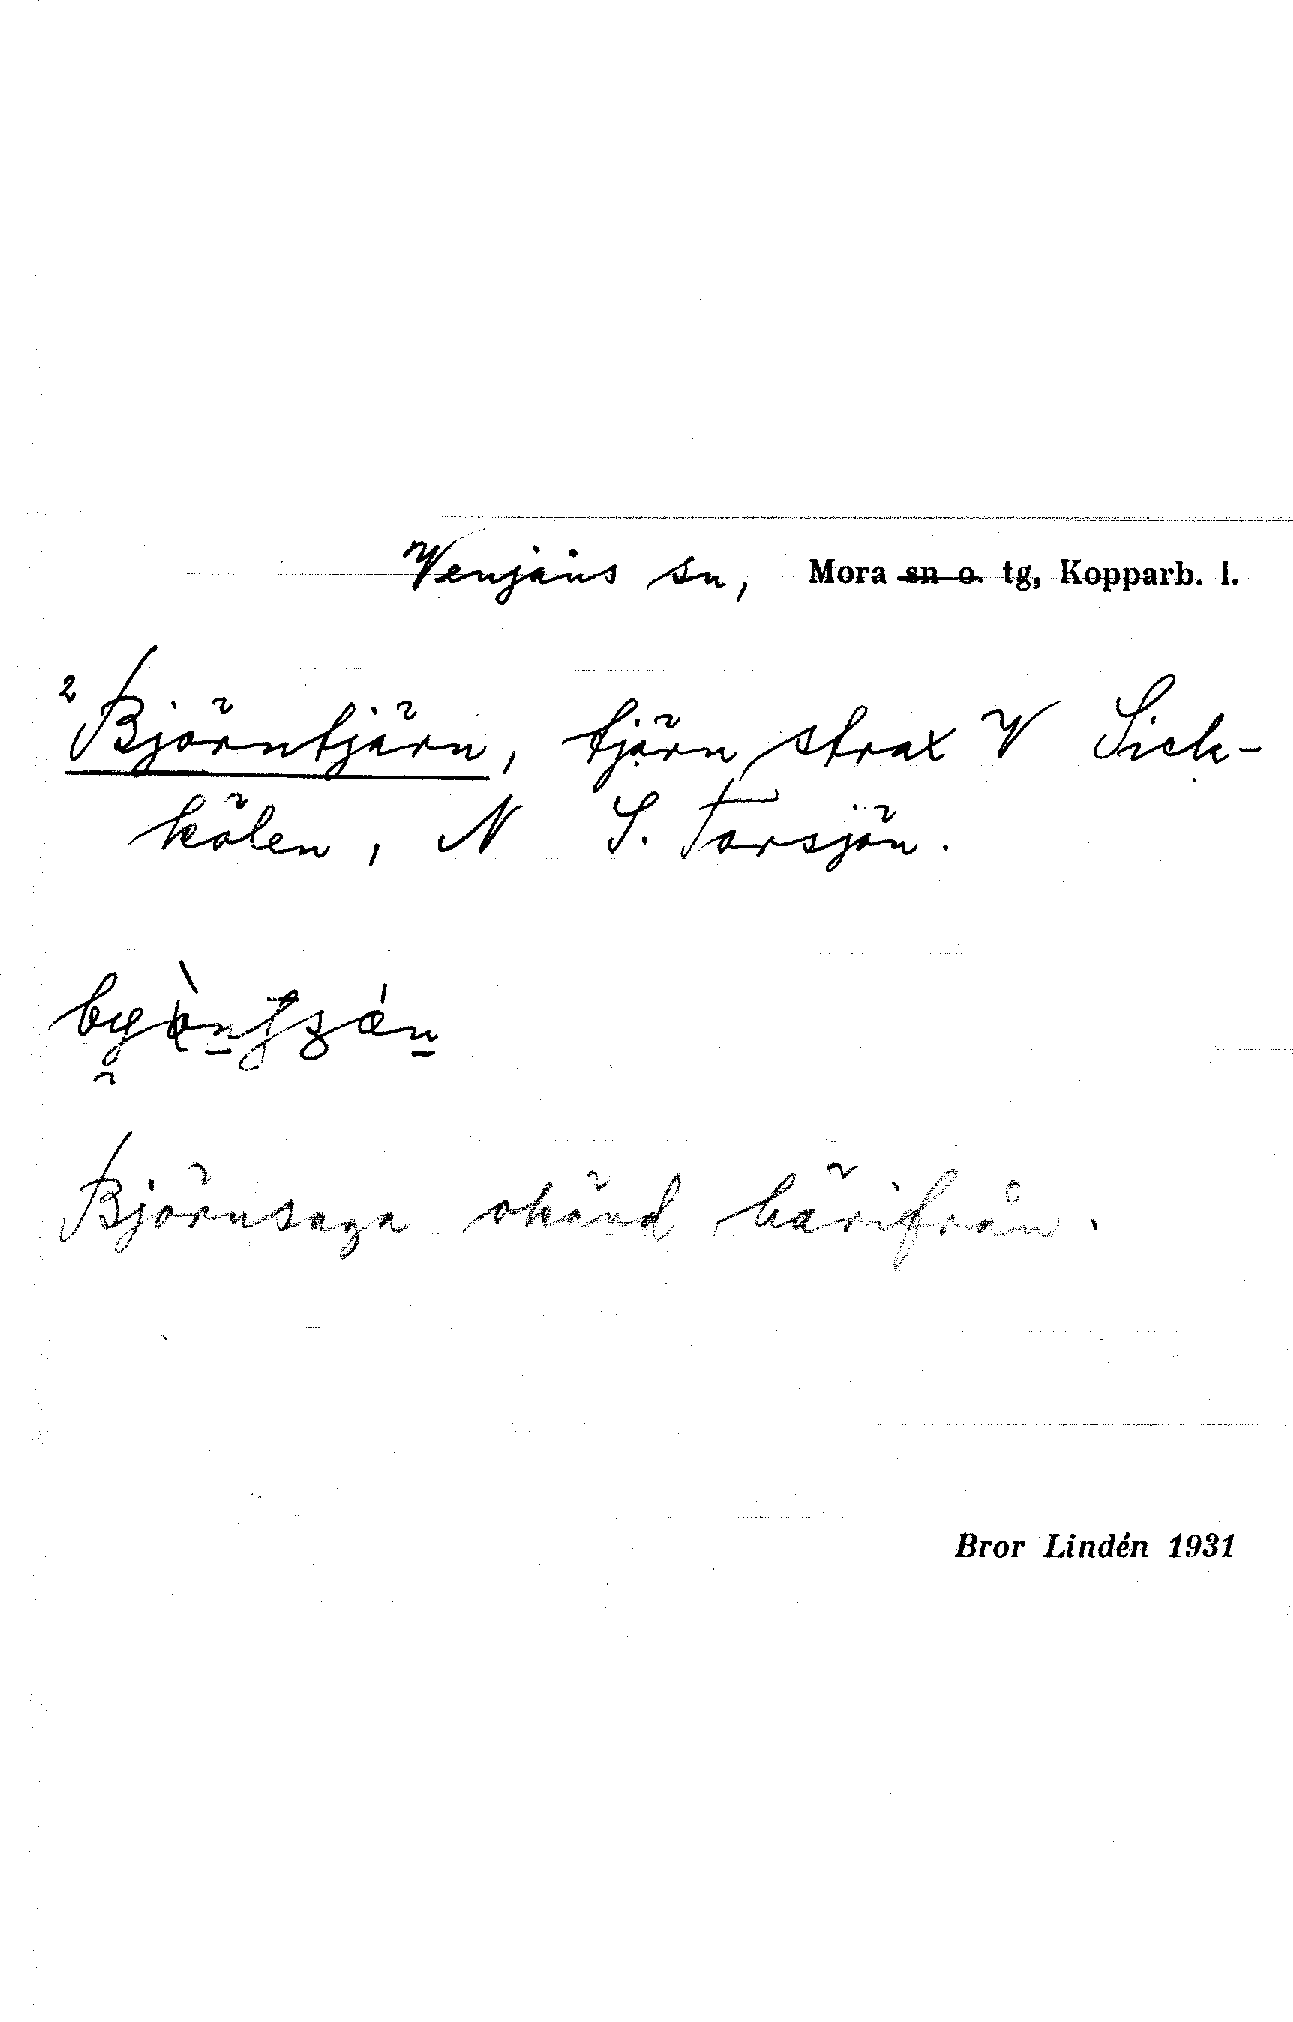 Venjans sn, Mora sn o. tg, Kopparb. l.
2 Björntjärn, tjärn strax V Sick-
kölen, N S. Torsjön.
Björnsaga okänd härifrån.
Bror Lindén 1931